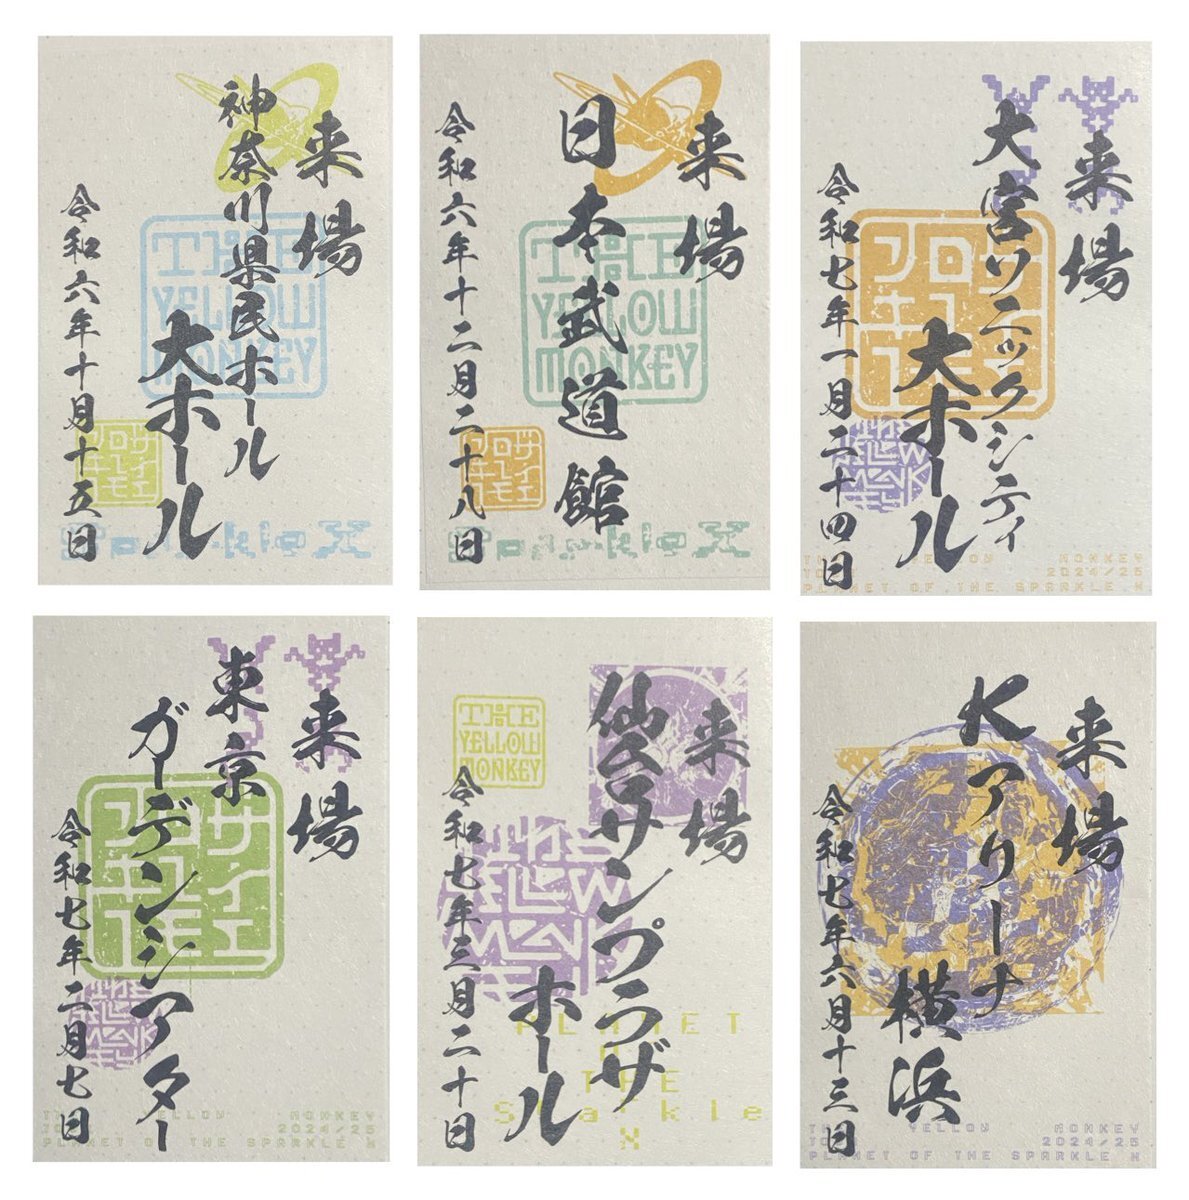 来場
神奈川県民ホール
大ホール
令和六年十月十五日
THE
YELLOW
MONKEY
ザ・イエ
ロー
モンキー
Sparkle X
来場
日本武道館
令和六年十二月二十八日
THE
YELLOW
MONKEY
Sparkle X
来場
大宮ソニックシティ
大ホール
令和七年一月二十四日
THE YELLOW MONKEY
TOUR 2024/25
PLANET OF THE SPARKLE X
来場
東京
ガーデンシアター
令和七年二月七日
THE YELLOW MONKEY
TOUR 2024/25
PLANET OF THE SPARKLE X
来場
仙台サンプラザ
ホール
令和七年三月二十日
THE
YELLOW
MONKEY
PLANET
THE
Sparkle
X
来場
Kアリーナ
横浜
令和七年六月十三日
THE YELLOW MONKEY
TOUR 2024/25
PLANET OF THE SPARKLE X